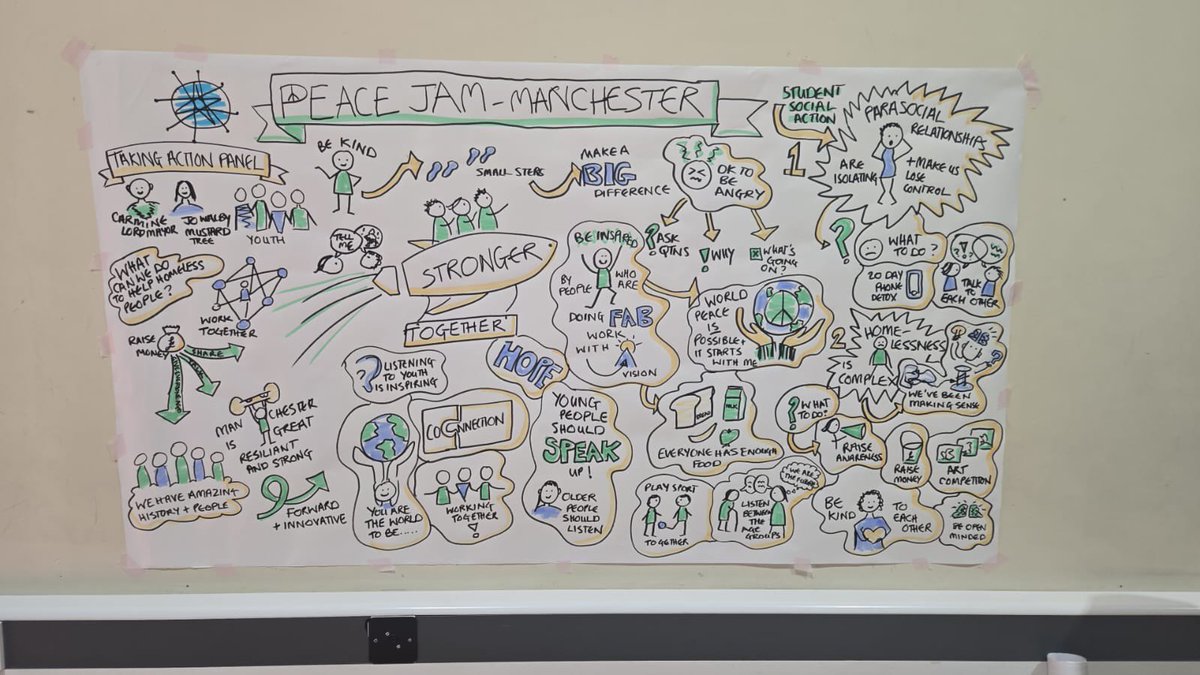 PEACE JAM - MANCHESTER
TAKING ACTION PANEL
CARMINE
LORD MAYOR
JO WALBY
MUSTARD
TREE
YOUTH
BE KIND
SMALL STEPS
MAKE A
BIG
DIFFERENCE
OK TO
BE
ANGRY
? ASK
QTNS
! WHY
WHAT'S
GOING
ON?
STUDENT
SOCIAL
ACTION
1
PARASOCIAL
RELATIONSHIPS
ARE
ISOLATING
+ MAKE US
LOSE
CONTROL
?
WHAT
TO DO?
20 DAY
PHONE
DETOX
TALK TO
EACH OTHER
WHAT
CAN WE DO
TO HELP HOMELESS
PEOPLE?
WORK
TOGETHER
RAISE
MONEY
SHARE
TELL
ME
STRONGER
TOGETHER
BE INSPIRED
BY
PEOPLE
WHO
ARE
DOING FAB
WORK
WITH
VISION
WORLD
PEACE
IS
POSSIBLE +
IT STARTS
WITH ME
2
HOME-
LESSNESS!
IS
COMPLEX
WE'VE BEEN
MAKING SENSE
?
WHAT
TO DO?
RAISE
AWARENESS
RAISE
MONEY
ART
COMPETITION
? LISTENING
TO YOUTH
IS INSPIRING
HOPE
MAN
CHESTER
IS
GREAT
RESILIANT
AND STRONG
WE HAVE AMAZING
HISTORY + PEOPLE
FORWARD
+ INNOVATIVE
YOU ARE
THE WORLD
TO BE.....
CONNECTION
WORKING
TOGETHER
!
YOUNG
PEOPLE
SHOULD
SPEAK
UP!
OLDER
PEOPLE
SHOULD
LISTEN
BREAD
MILK
EVERYONE HAS ENOUGH
FOOD
PLAY SPORT
TOGETHER
WE ARE
THE FUTURE
LISTEN
BETWEEN
THE
AGE
GROUPS!
BE
KIND
TO
EACH
OTHER
BE OPEN
MINDED